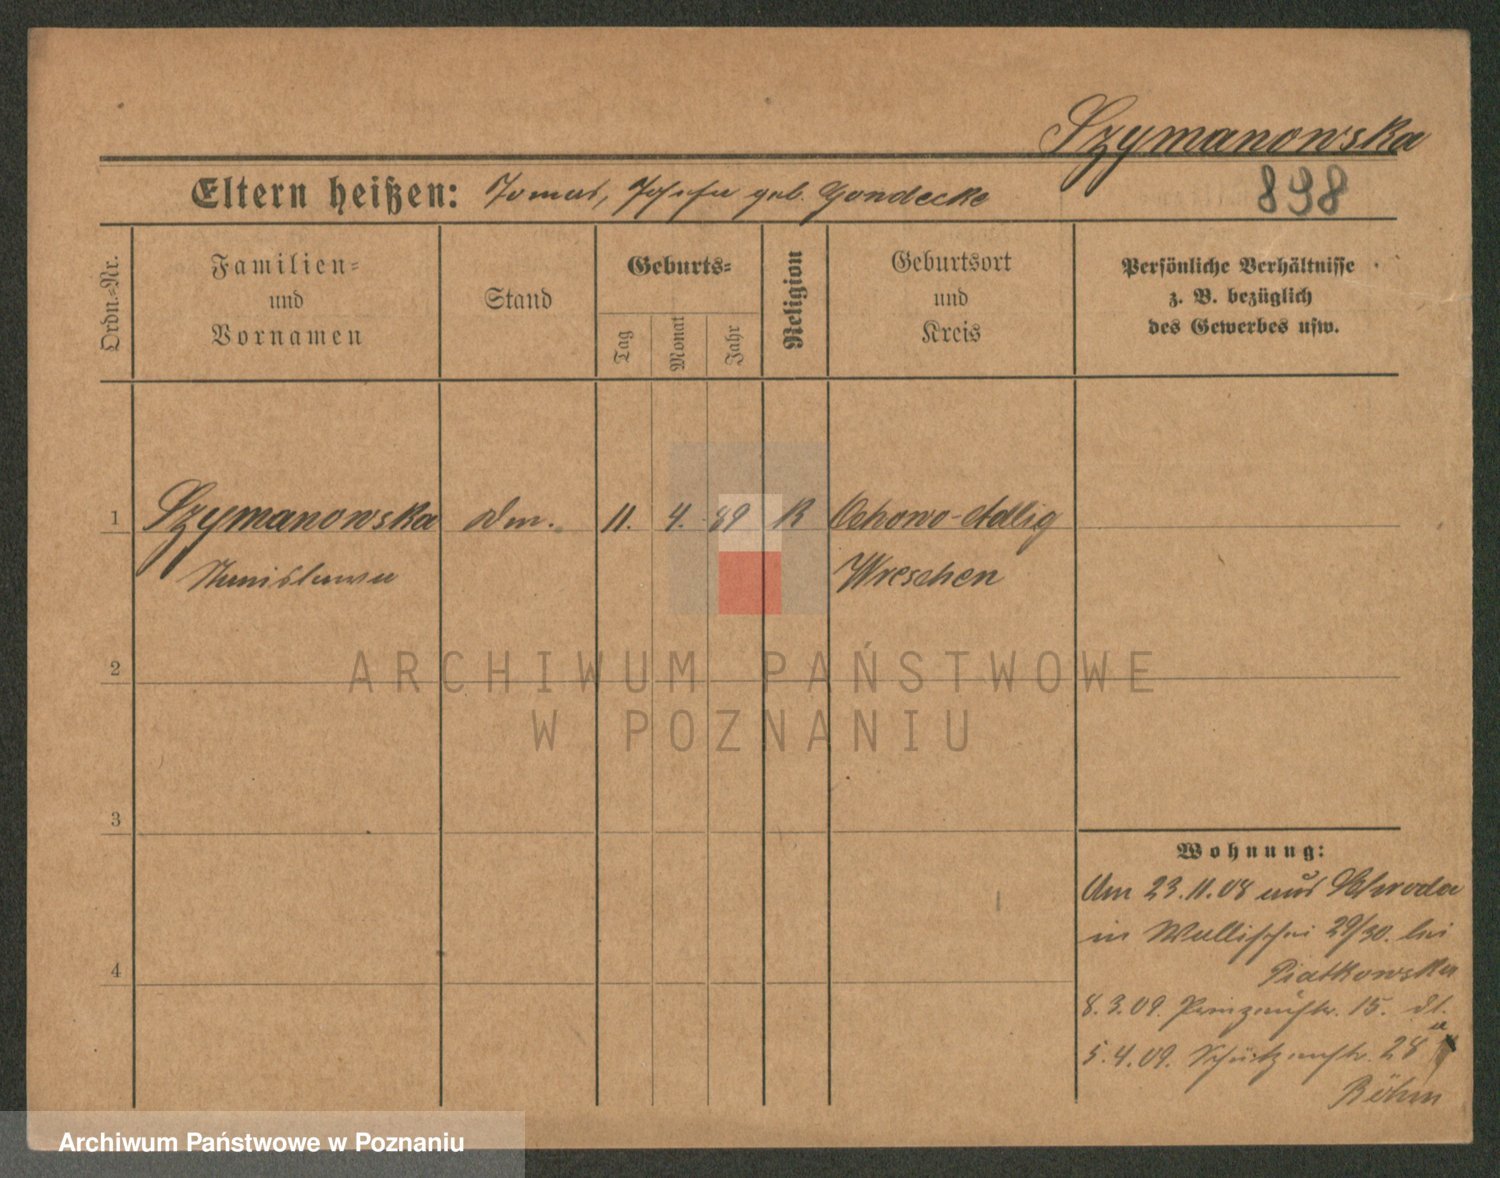 Szymanowska
898
Eltern heißen: Tomas, Josefa geb. Gondecke
Ordn.-Nr.
Familien-
und
Vornamen
Stand
Geburts-
Tag
Monat
Jahr
Religion
Geburtsort
und
Kreis
Persönliche Verhältnisse
z. B. bezüglich
des Gewerbes usw.
1 Szymanowska 11. 4. 89 K Adlig
Stanislawa Wreschen
2
3
4
Wohnung:
Am 23.11.08 aus Schroda
in Wallischei 29/30. bei
Piatkowska
8.3.09. Prinzenstr. 15.
5.4.09. Schützenstr. 28
Böhm
ARCHIWUM PAŃSTWOWE
W POZNANIU
Archiwum Państwowe w Poznaniu